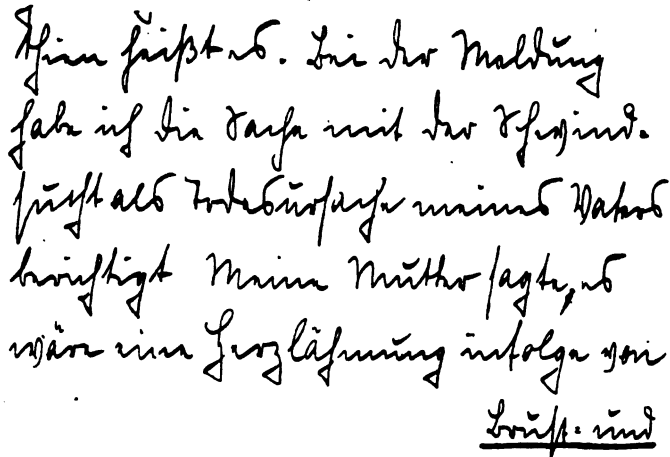 Thien heißt es. Bei der Meldung
habe ich die Sache mit der Schwind-
sucht als Todesursache meines Vaters
berichtigt Meine Mutter sagte, es
wäre eine Herzlähmung infolge von
Brust- und